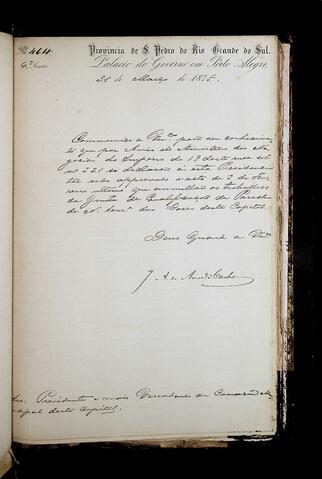 Nº 464
4ª Secção
Provincia de S. Pedro do Rio Grande do Sul.
Palacio do Governo em Porto Alegre,
31 de Março de 1875
Communico a Vmces para seu conhecimen-
to que por Aviso do Ministerio dos Ne-
gocios do Imperio de 19 deste mez sob
n. 221 se declarou a esta Presidencia
ter sido approvado o acto de 3 de Feve-
reiro ultimo que annullou os trabalhos
da Junta de Qualificação da Parochia
de N. Senra das Dores desta Capital.
Deus Guarde a Vmces
J. A. de Azevedo Castro
Snrs. Presidente e mais Vereadores da Camara Mu-
nicipal desta Capital.